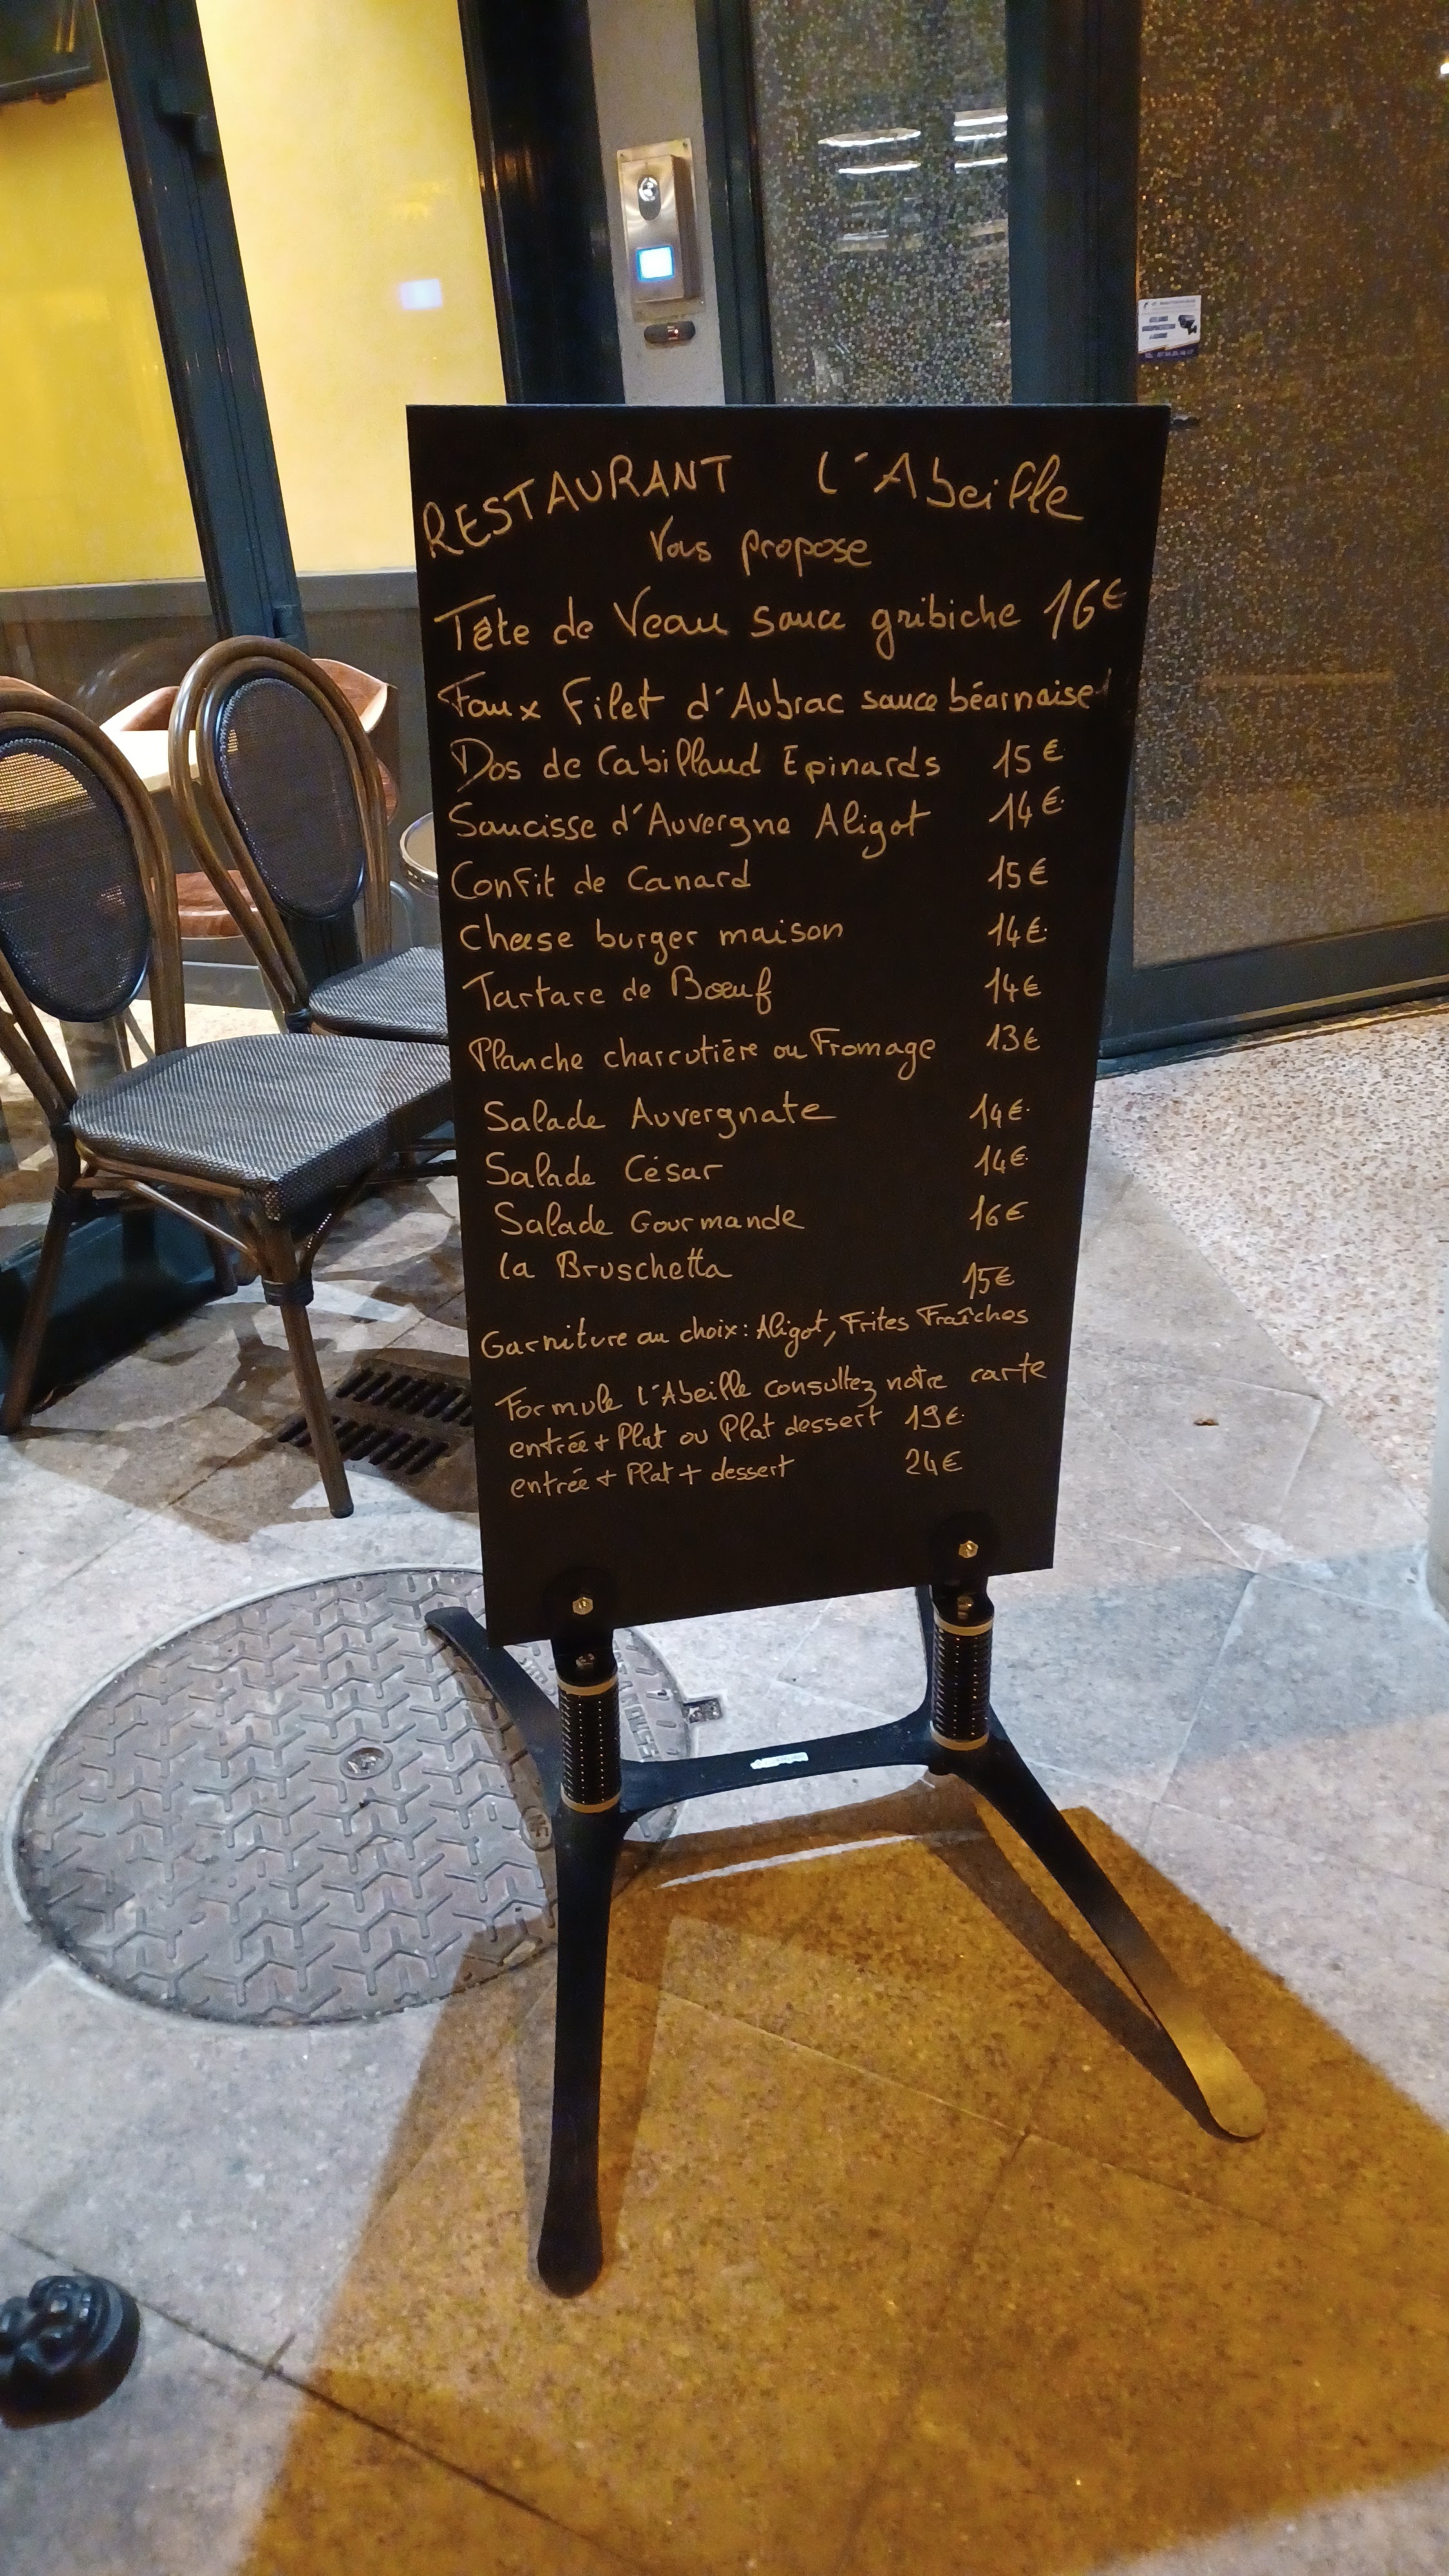 RESTAURANT L'Abeille
Vous propose
Tête de Veau sauce gribiche 16€
Faux Filet d'Aubrac sauce béarnaise
Dos de Cabillaud Epinards 15€
Saucisse d'Auvergne Aligot 14€
Confit de Canard 15€
Cheese burger maison 14€
Tartare de Bœuf 14€
Planche charcutière ou Fromage 13€
Salade Auvergnate 14€
Salade César 14€
Salade Gourmande 16€
la Bruschetta 15€
Garniture au choix: Aligot, Frites Fraîches
Formule l'Abeille consultez notre carte
entrée + Plat ou Plat dessert 19€
entrée + Plat + dessert 24€